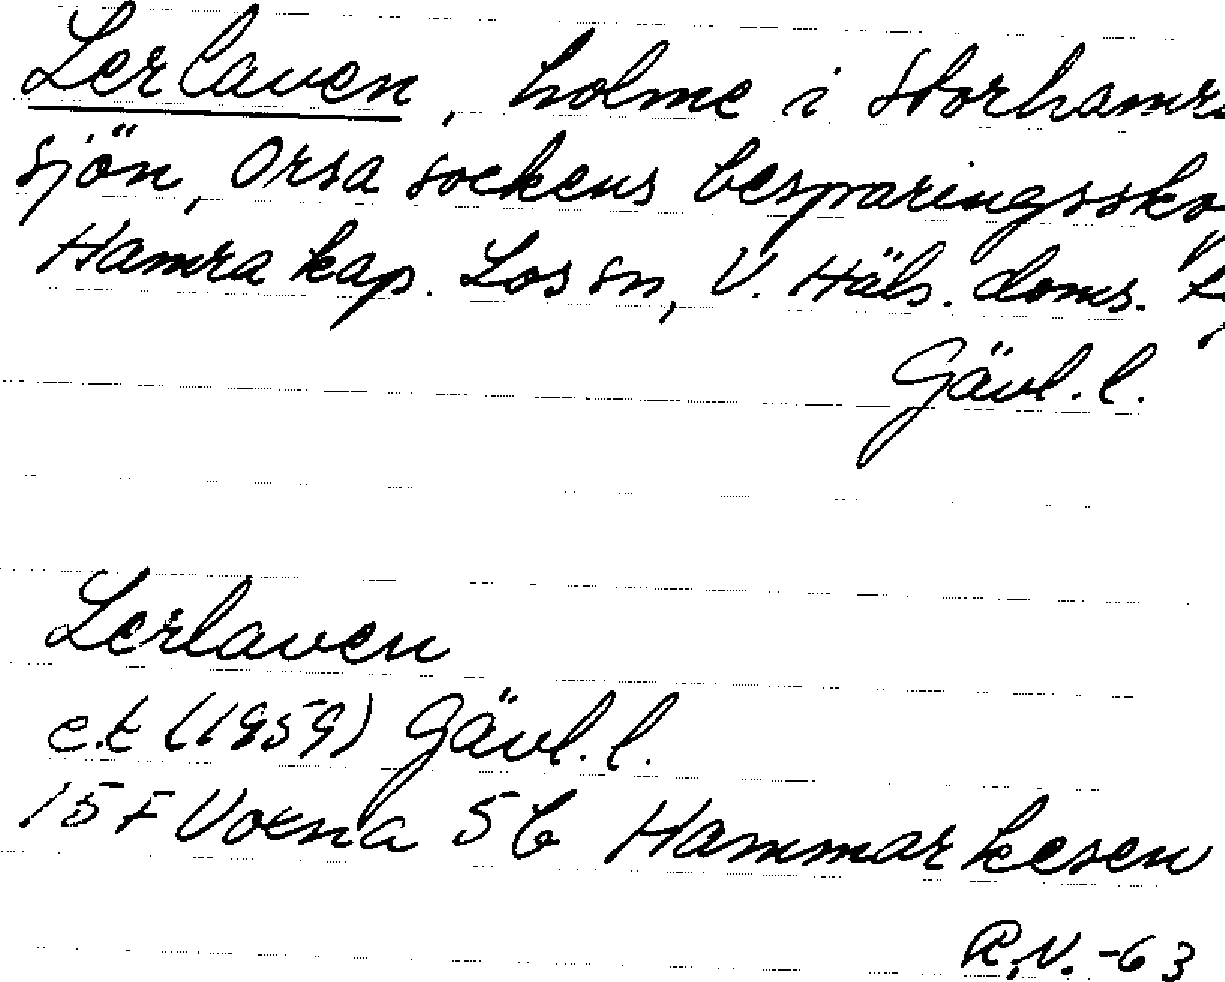 Lerlaven, holme i Storhamra
sjön, Orsa sockens besparingssko
Hamra kap. Los sn, V. Häls. doms.
Gävl. l.
Lerlaven
e.k (1959) Gävl. l.
15 F Voxna 5b Hammarkesen
R.V. -63